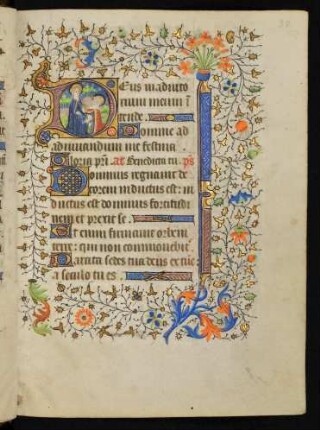 Deus in adiuto
rium meum i
tende. Domine ad
adiuuandum me festina
Gloria pri. at Benedicta tu. ps
Dominus regnauit de
corem indutus est: in
dutus est dominus fortitudi
nem et precit se
Et enim firmauit orbem
terre: qui non commouebit
Parata sedes tua deus ex tuc:
a seculo tu es